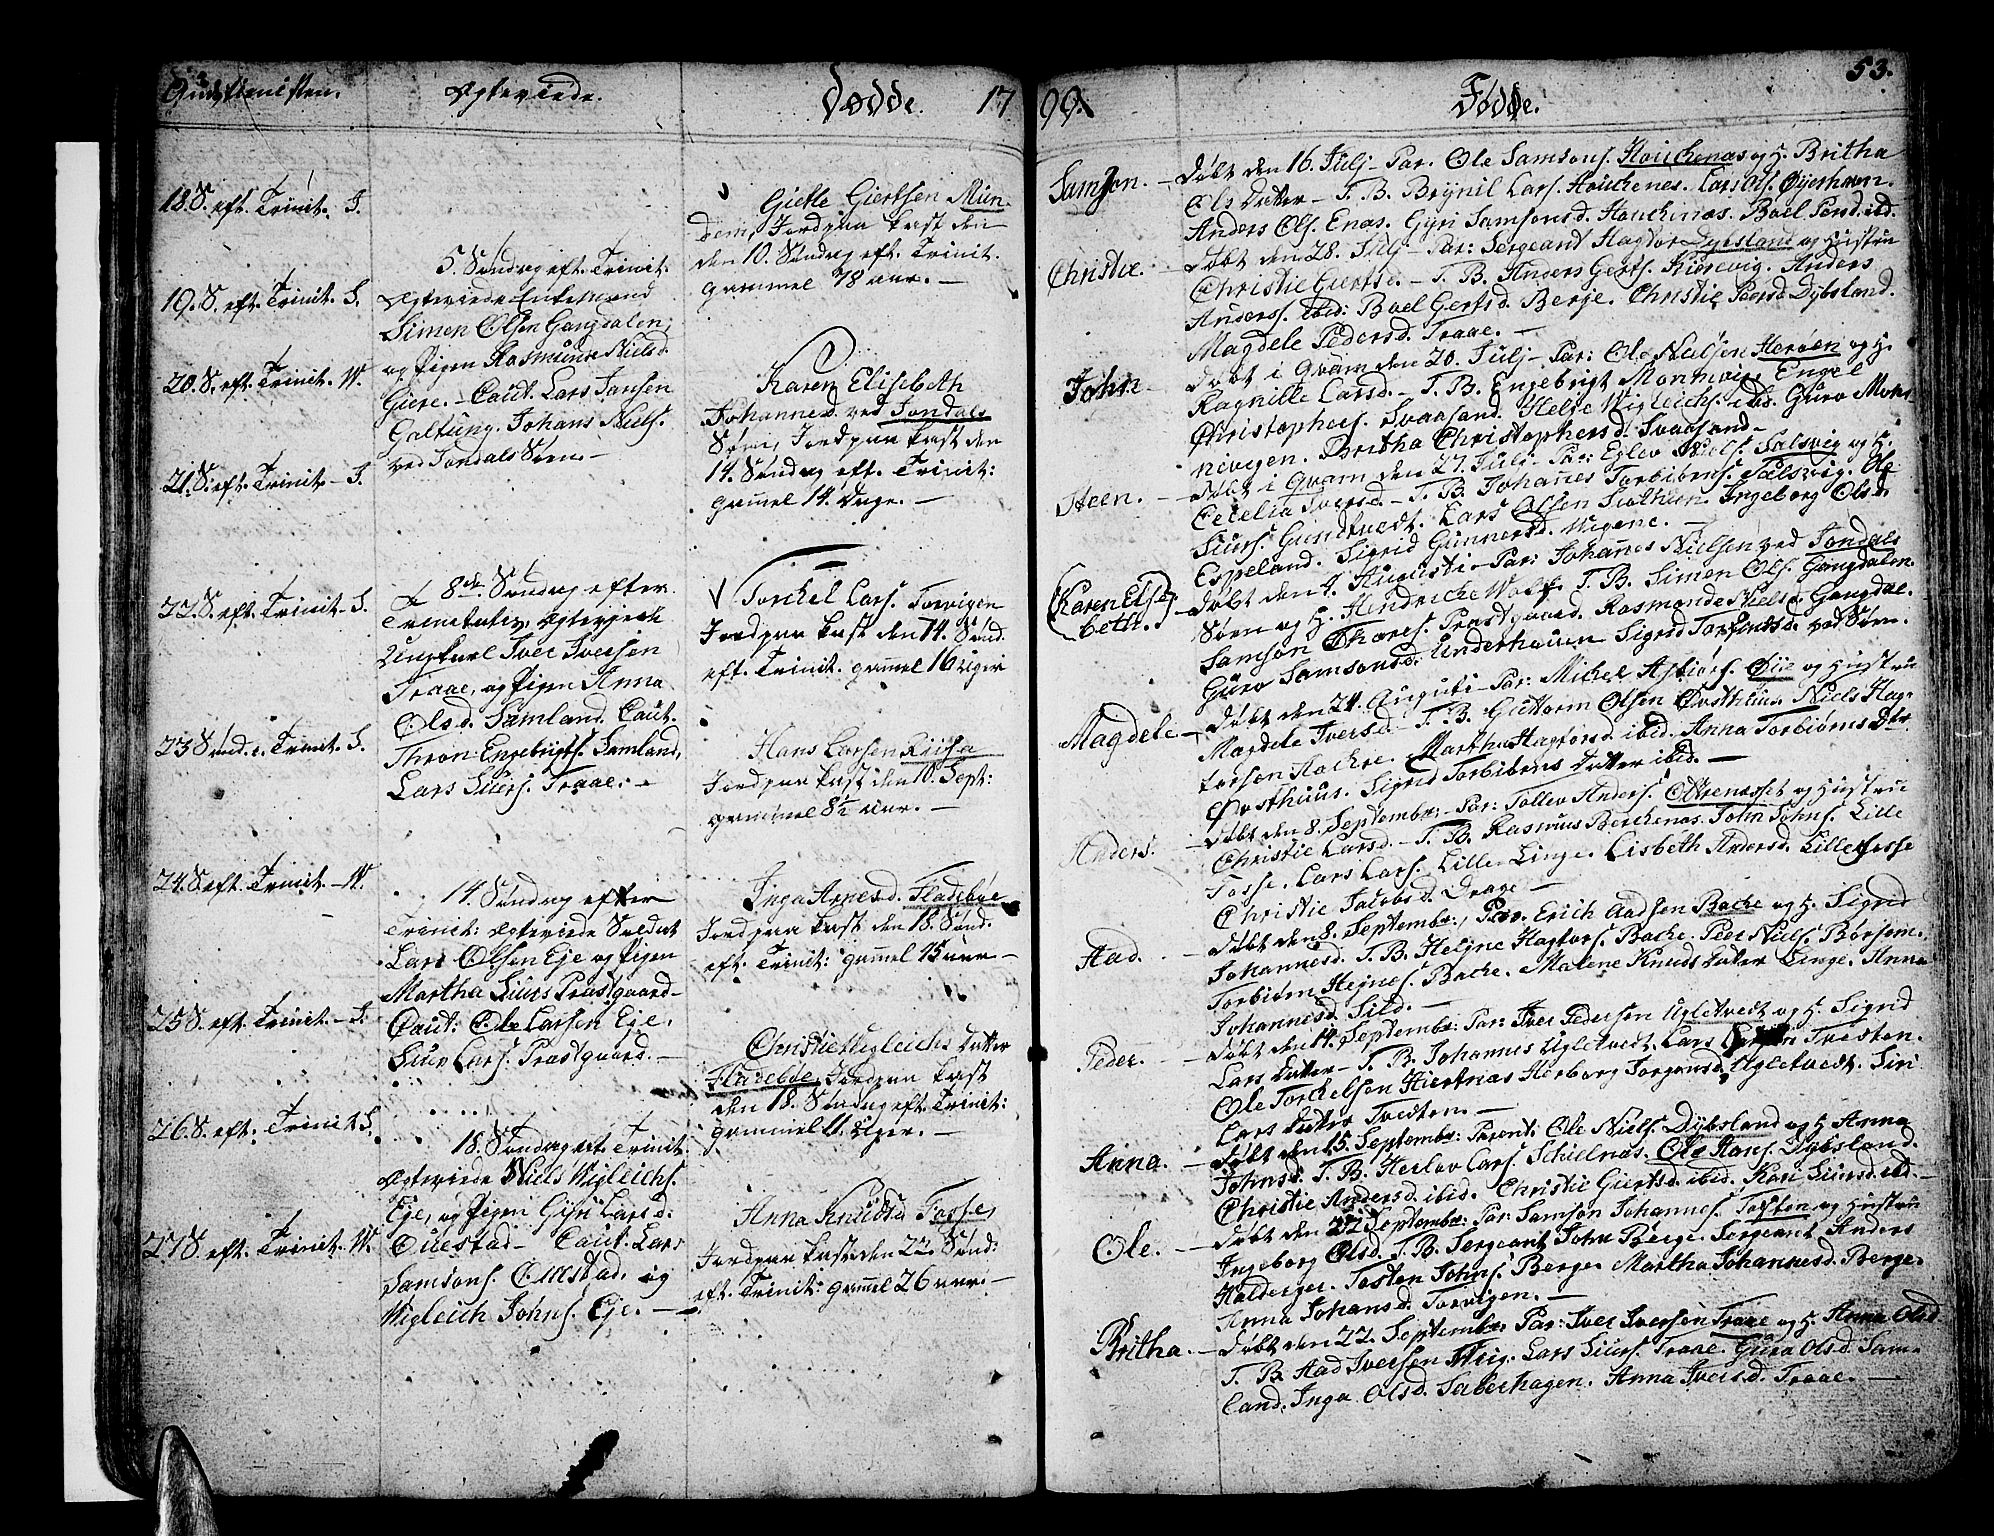 Gudstienisten.
18. S. eft. Trinit. J.
19. S. eft. Trinit. S.
20. S. eft. Trinit. W.
21. S. eft. Trinit. J.
22. S. eft. Trinit. S.
23 Sønd. e. Trinit. S.
24. S. eft. Trinit. W.
25 S. eft. Trinit. J.
26 S. eft. Trinit. S.
27 S. eft. Trinit. W.
Ægteviede.
5. Søndag eft. Trinit.
Ægteviede Enkemand
Simen Olsen Gangdalen,
og Pigen Rasmunde Nielsd.
Giere. Caut. Lars Jansen
Galtung. Johans Niels.
ved Jondals Søen.
8de Søndag efter
Trinitatis,
Ungkarl Iver Iversen
Traae, og Pigen Anna
Olsd. Samland. Caut.
Thron Engebrigts. Samland,
Lars Siurs. Traae.
14. Søndag efter
Trinit: Ægteviede Soldat
Lars Olsen Eje og Pigen
Martha Siurs Præstgaard
Caut: Ole Larsen Eje,
Siur Lars. Præstgaard.
18. Søndag eft. Trinit.
Ægteviede Niels Wigleichs.
Eje, og Pigen Gyri Larsd:
Qvestad Caut. Lars
Samsons. og
Wigleich Johns. Eje.
Dødde. 17
Giertsen Mun-
dem, Jordpaakast den
den 10. Søndag eft. Trinit.
gammel 78 aar.
Karen Elisebeth
Johannesd. ved Jondals
Søen, Jordpaakast den
14. Søndag eft. Trinit:
gammel 14 Dage.
Torchel Lars. Torvigen
Jordpaakast den 14. Sønd.
eft. Trinit. gammel 16 uger
Hans Larsen
Jordpaakast den 10. Sept:
gammel 8½ aar.
Inga Arnesd. Fladebøe
Jordpaakast den 18. Sønd.
eft. Trinit: gammel 75 aar
Christie Wigleichs Datter
Fladebøe, Jordpaakast
den 18. Søndag eft. Trinit:
gammel 11. Uger.
Anna Knudsd. Fosse,
Jordpaakast den 22. Sønd:
eft. Trinit: gammel 26 aar.
99. Fødde. 53.
Samson. Døbt den 16. Julj Par. Ole Samsons. Houchenæs og H. Britha
Ols Datter T. B. Brynil Lars. Houchenes. Lars Ols. Øyerhavn.
Anders Ols. Enæs. Gyri Samsonsd. Houchenæs. Boel Persd. ibd.
Christie. Døbt den 28. Julj Par: Sergeant Hagtor Dybsland og Hustru
Christie Giertsd. T. B. Anders Gerts. Anders
Anders. ibid: Boel Gertsd. Berje. Christie Peersd. Dybsland.
Magdele Pedersd. Traae.
John Døbt i Qvam den 20. Julj Par: Ole Nielsen Herøen og H.
Ragnilde Larsd. T. B. Engebrigt Engel
Christophers. Svaasand. Helje Wigleichs. ibid. Guro
Britha Christophersd. Svaasand
Steen. Døbt i Qvam den 27. Julj Par: Salsvig og H.
Cecelia Iversd. T. B. Johanes Torbiöns. Salsvig. Ole
Siurs. Gundtvedt. Lars Olsen Ingeborg Olsd.
Espeland. Sigrid Gunnersd.
Karen Else- Døbt den 4. Augusti Par: Johanes Nielsen ved Jondals
beth. Søen og H. Hendriche T. B. Simen Ols. Gangdalen
Samson Præstgaard. Rasmonde Nielsd. Gangdal.
Guro Samsonsd. Underhaven Sigrid ved Søen.
Magdele Døbt den 24. Augusti Par: Michel Asbiørs. Øye og Hustru
Magdele Iversd. T. B. Guttorm Olsen Østhuus. Niels Hag-
torsen Aachre. Martha Hagtorsd. ibid. Anna Torbiørns Dtr
Østhuus. Sigrid Torbiöns Datter ibid.
Anders. Døbt den 8. Septembr: Par: Tollev Anders. og Hustru
Christie Larsd. T. B. Rasmus Berchenæs. John Johns. Lille
Fosse. Lars Lars. Lille Linge. Lisbeth Andersd. Lille Fosse
Christie Jacobsd. Drage
Aad. Døbt den 8. Septembr: Par. Erich Aadsen Bache og H. Sigrid
Johannesd. T. B. Helgne Hagtors. Bache. Peer Niels. Børsem.
Torbiörn Hejnes. Bache. Malene Knuds Datter Linge. Anna
Johannesd. Sild.
Peder. Døbt den 14. Septembr: Par: Iver Pedersen Ugletvedt og H. Sigrid
Lars Datter T. B. Johannes Ugletvedt. Lars Tvesten.
Ole Torchelsen Hiertnæs Herborg Ugletvedt. Siri
Lars Datter Tvesten.
Anna. Døbt den 15. Septembr: Parent: Ole Niels. Dybsland og H. Anna
Johnsd. T. B. Herlov Lars. Schielnæs. Ole Hans. Dybsland.
Christie Andersd. ibid. Christie Giertsd. ibid. Kari Siursd. ibd.
Ole. Døbt den 22. Septembr: Par: Samson Johannes. og Hustru
Ingeborg Olsd. T. B. Sergeant John Berge. Sergeant Anders
Halderger. Tosten Johns. Berge Martha Johannesd. Berge.
Anna Johansd. Torvigen.
Britha. Døbt den 22. Septembr Par: Iver Iversen Traae og H. Anna Olsd
T. B. Aad Iversen Lars Siurs. Traae. Guro Olsd. Sam-
land. Inga Olsd. Saberhagen. Anna Iversd. Traae.